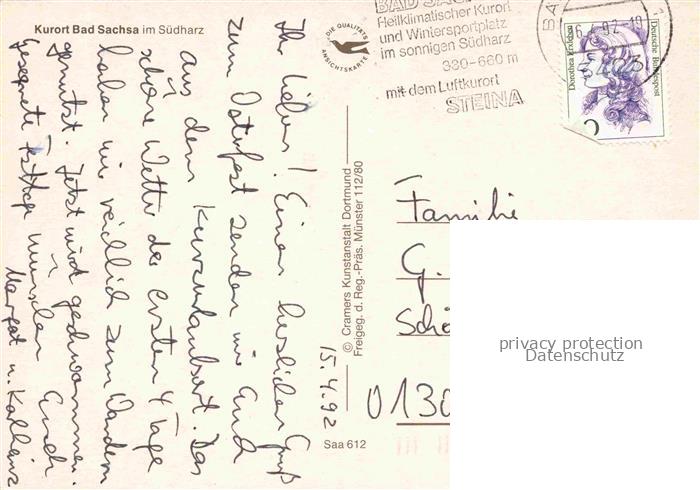 Kurort Bad Sachsa im Südharz
DIE QUALITÄTS
ANSICHTSKARTE
BAD SACHSA
Heilklimatischer Kurort
und Wintersportplatz
im sonnigen Südharz
330-660 m
mit dem Luftkurort
STEINA
16.4.92-19
Dorothea Erxleben
Deutsche Bundespost
Ihr Lieben! Einen herzlichen Gruß
zum Osterfest senden wir Euch
aus dem Kurzurlaub. Das
schöne Wetter der ersten 4 Tage
haben wir reichlich zum Wandern
genutzt. Jetzt wird geschwommen.
Gesegnete Festtage wünschen Euch
Margot u. Karlheinz
15.4.92
© Cramers Kunstanstalt Dortmund
Freigeg. d. Reg.-Präs. Münster 112/80
Saa 612
Familie
G.
Schö
0130
privacy protection
Datenschutz